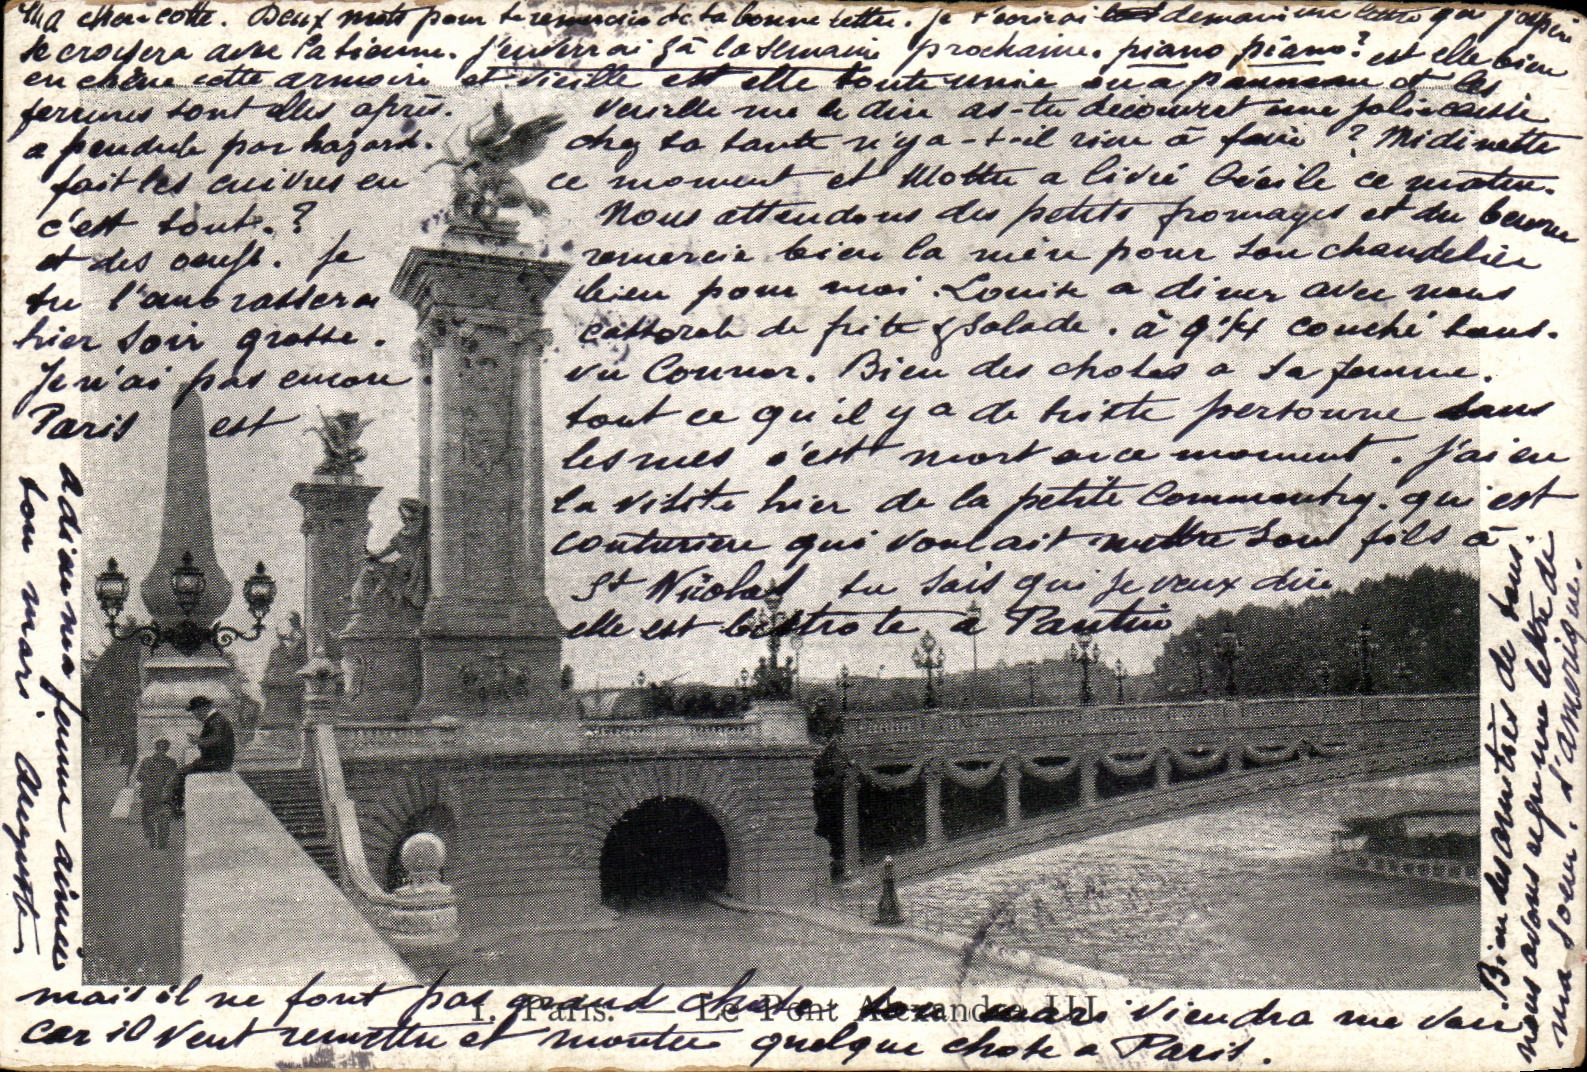 Ma chou-cotte. Deux mots pour te remercier de ta bonne lettre. je t'ecrirai demain une lettre qui j'espère
se croisera avec la tienne. j'enverrai ça la semaine prochaine. piano piano? est elle bien
en chêne cette armoire et vieille est elle toute unie ou a panneau et les
ferrures sont elles après. Veuille me le dire as-tu découvert une jolie
a pendule par hazard. chez ta tante n'y a-t-il rien à faire ? Midinette
fait les cuivres en ce moment et Motte a livré Cécile ce matin.
c'est tout. ? Nous attendons des petits fromages et du beurre
et des oeufs. Je remercie bien la mère pour son chandelier
tu l'embrassera bien pour moi. Louise a diner avec nous
hier soir grosse. casserole de frite & salade. à 9 1/4 couché tous.
Je n'ai pas encore vu Connor. Bien des choses a sa femme.
Paris est tout ce qu'il y a de triste personne dans
les rues c'est mort en ce moment. j'ai eu
la visite hier de la petite Commentry. qui est
couturiere qui voulait mettre son fils à
St Nicolas tu sais qui je veux dire
elle est bistrote a Pantin
mais il ne font pas grand chose son mari viendra me voir
car il veut remettre et monter quelque chose a Paris.
1. Paris. — Le Pont Alexandre III
adieu ma femme aimée
ton mari. Auguste
Bien des amitiés de tous.
nous avons reçu une lettre de
ma soeur. d'amerique.